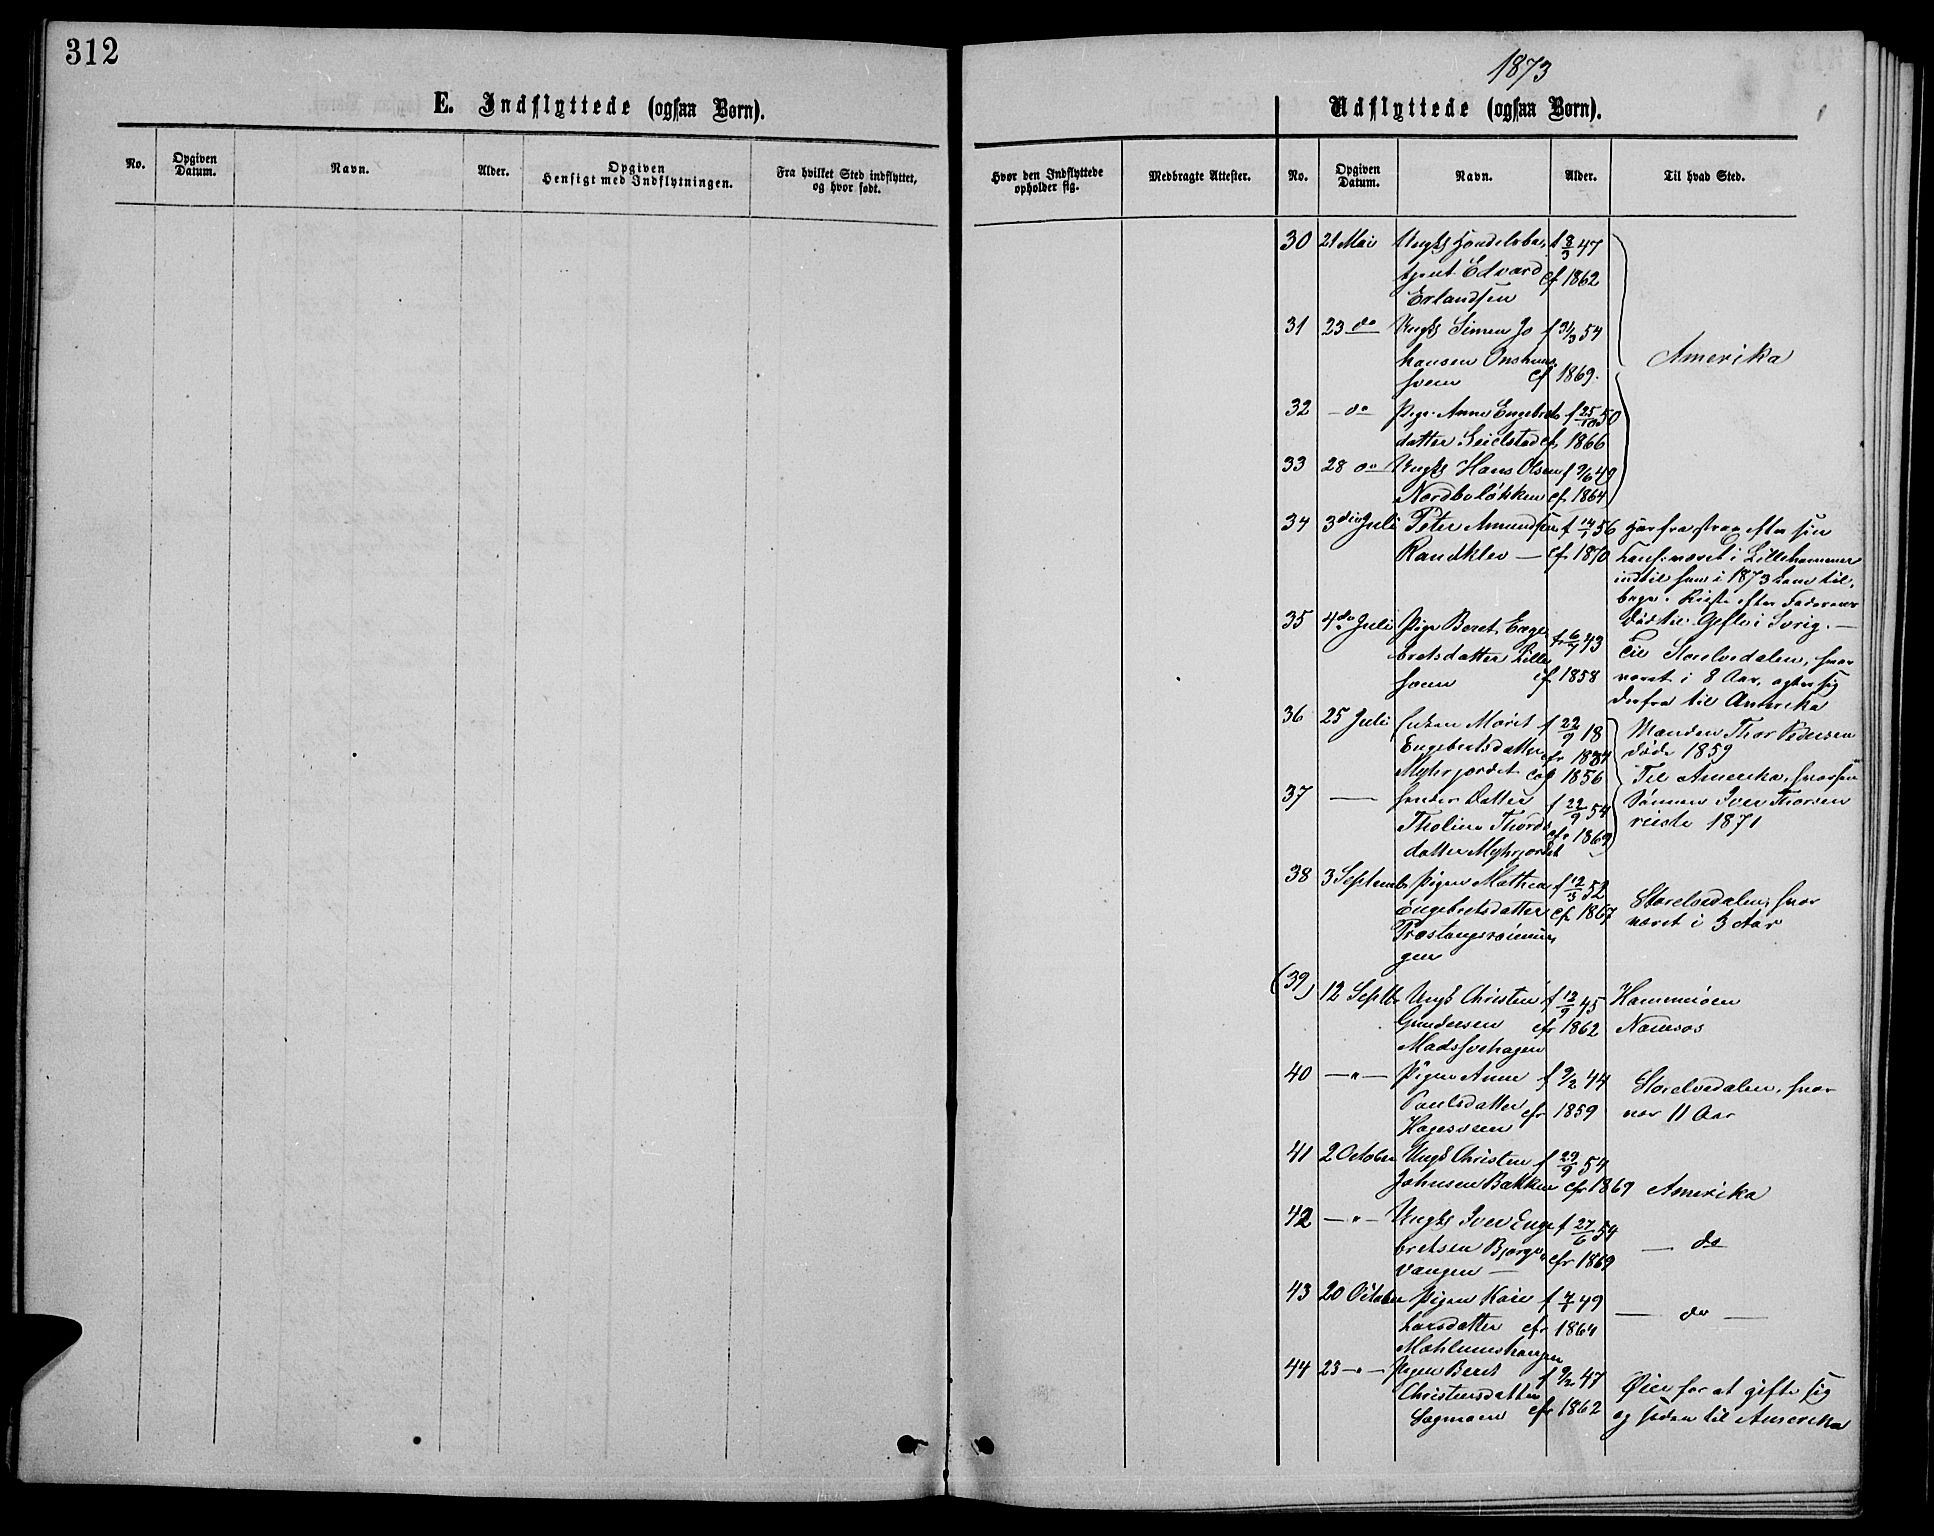 312
E. Indflyttede (ogsaa Børn).
No.
Opgiven
Datum.
Navn.
Alder.
Opgiven
Hensigt med Indflytningen.
Fra hvilket Sted indflyttet,
og hvor født.
1873
Udflyttede (ogsaa Børn).
Hvor den Indflyttede
opholder sig.
Medbragte Attester.
No.
Opgiven
Datum.
Navn.
Alder.
Til hvad Sted.
30 21 Mai Ungk Handelsbe, f 8/3 47
tjent Edvard cf 1862
Erlandsen
31 23 do Ungk Simen Jo f 31/3 54
hansen cf 1869.
Amerika
32 - do Pige Anne Engebrets f 25/10 50
datter cf 1866
33 28 do Ungk Hans Olsen f 9/6 49
Nordboløkken cf 1864
34 3die Juli Peter Amundsen f 14/1 56
Randklev — cf 1870
herfra strax efter sin
Conf. været i Lillehammer
indtil han i 1873 kom til,
bage. Reiste efter Faderens
Død til Gefle i Sverig. —
35 4de Juli Pige Beret Enge f 6/7 43
bretsdatter Lille
hven cf 1858
Til Storelvedalen, hvor
været i 8 Aar, agter sig
derfra til Amerika
36 25 Juli Enken Marit f 22/9 18
Engebretsdatter cfr 1834
Myhrjordet cop 1856
Manden Thor Pedersen
døde 1859
Til Amerika, hvorhen
Sønnen Iver Thorsen
reiste 1871
37 — hendes Datter f 22/9 54
Tholine Thords cfr 1869
datter Myhrjordet
38 3 Septemb Pigen Mathea f 12/3 52
Engebretsdatter cfr 1867
gen
Storelvedalen, hvor
været i 3 Aar
(39) 12 Septb Ungk Christen f 12/9 45
Gundersen cfr 1862
Madshovehagen
Namsos
40 —"— Pigen Anne f 9/2 44
Paulsdatter cfr 1859
Hagesveen
Storelvedalen, hvor
var 11 Aar
41 2 October Ungk Christen f 29/9 54
Johnsen Bakken cfr 1869 Amerika
42 —"— Ungk Iver Enge f 27/6 54
bretsen Bjørge, cfr 1869
vangen —
— do
43 20 October Pigen Kari f 7/7 49
Larsdatter cfr 1864
Mæhlumshaugen
— do —
44 23 —"— Pigen Beret f 9/2 47
Christensdatter
Sagmoen cfr 1862
Øier for at gifte sig
og siden til Amerika